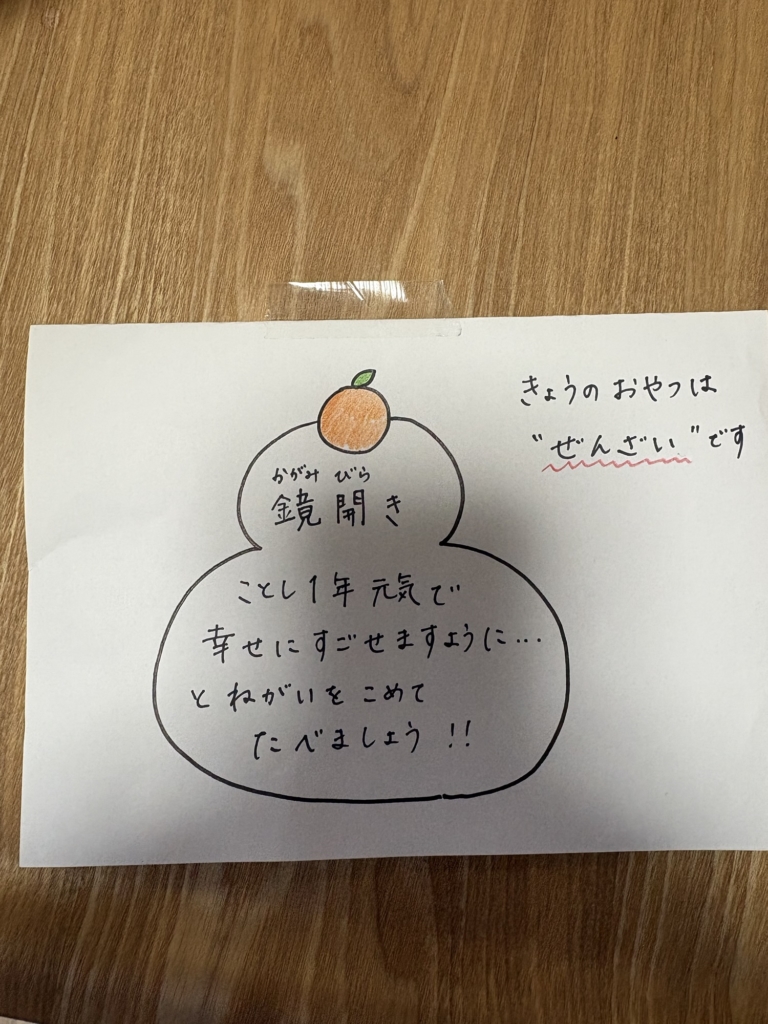 かがみ びら
鏡開き
ことし1年 元気で
幸せにすごせますように…
とねがいをこめて
たべましょう!!
きょうのおやつは
"ぜんざい"です